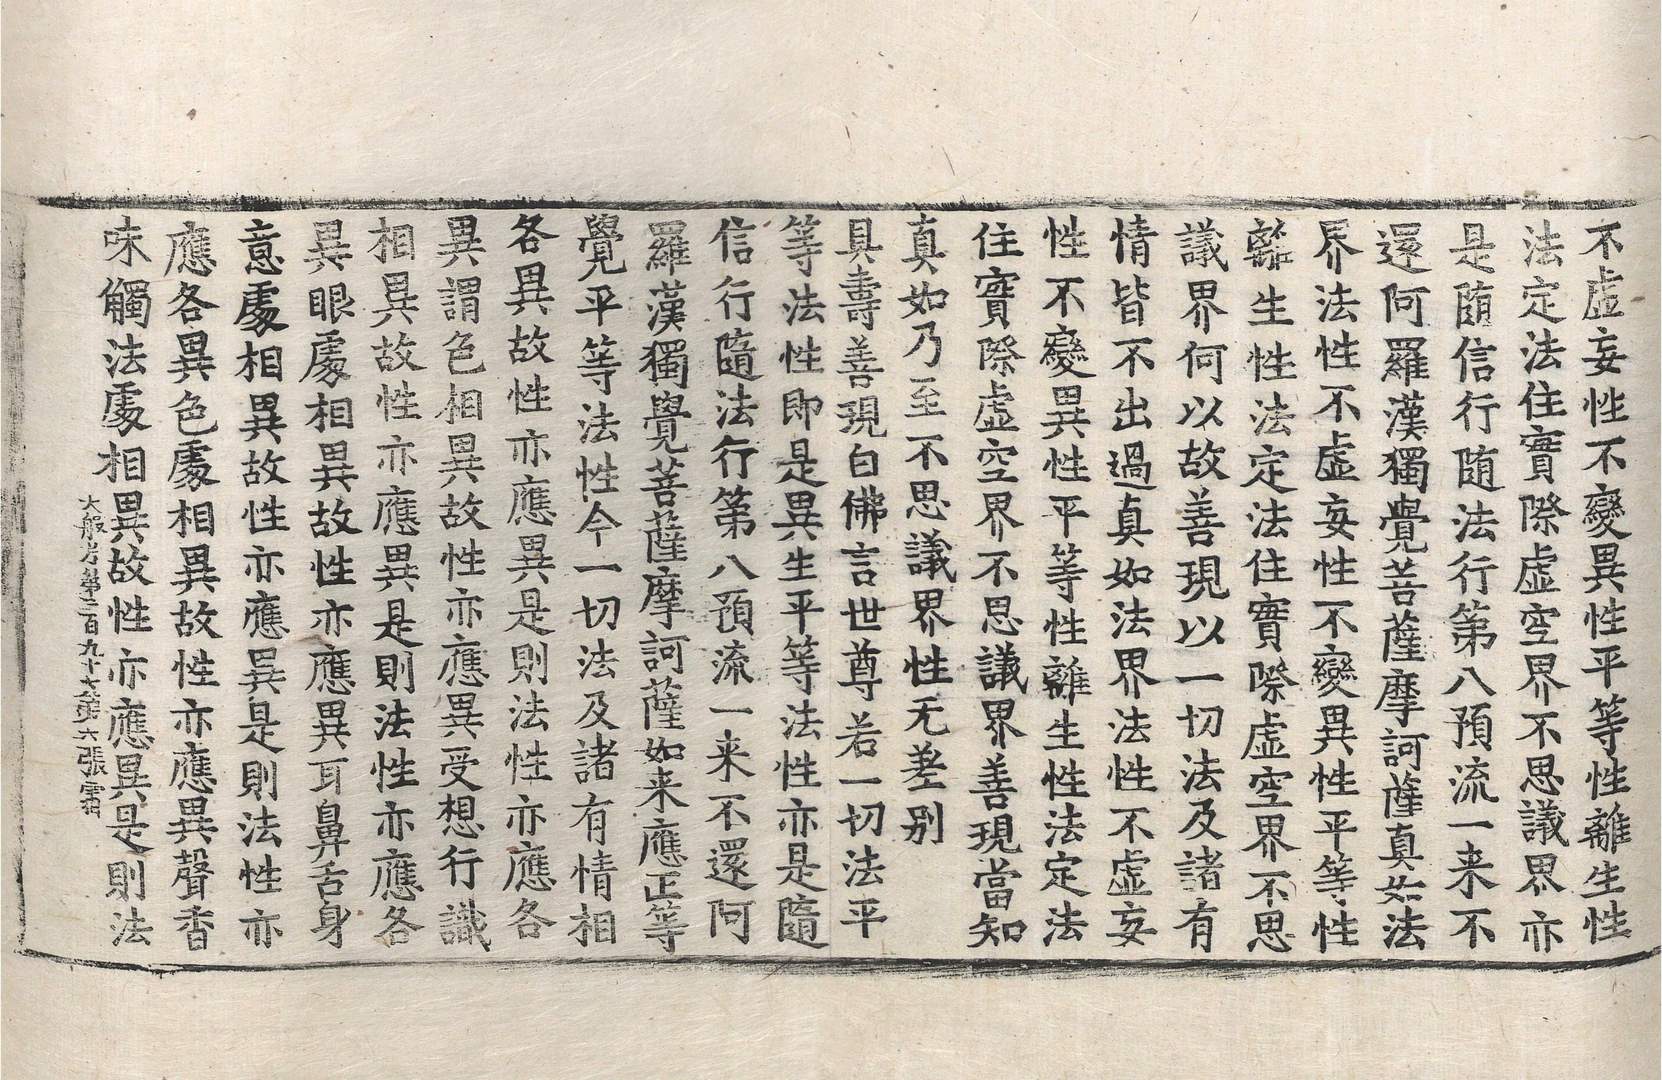 不虛妄性不變異性平等性離生性
法定法住實際虛空界不思議界亦
是随信行随法行第八預流一来不
還阿羅漢獨覺菩薩摩訶薩真如法
界法性不虛妄性不變異性平等性
離生性法定法住實際虛空界不思
議界何以故善現以一切法及諸有
情皆不出過真如法界法性不虛妄
性不變異性平等性離生性法定法
住實際虛空界不思議界善現當知
真如乃至不思議界性无差别
具壽善現白佛言世尊若一切法平
等法性即是異生平等法性亦是隨
信行隨法行第八預流一来不還阿
羅漢獨覺菩薩摩訶薩如来應正等
覺平等法性今一切法及諸有情相
各異故性亦應異是則法性亦應各
異謂色相異故性亦應異受想行識
相異故性亦應異是則法性亦應各
異眼處相異故性亦應異耳鼻舌身
意處相異故性亦應異是則法性亦
應各異色處相異故性亦應異聲香
味觸法處相異故性亦應異是則法
大般 第 百九十 第六張